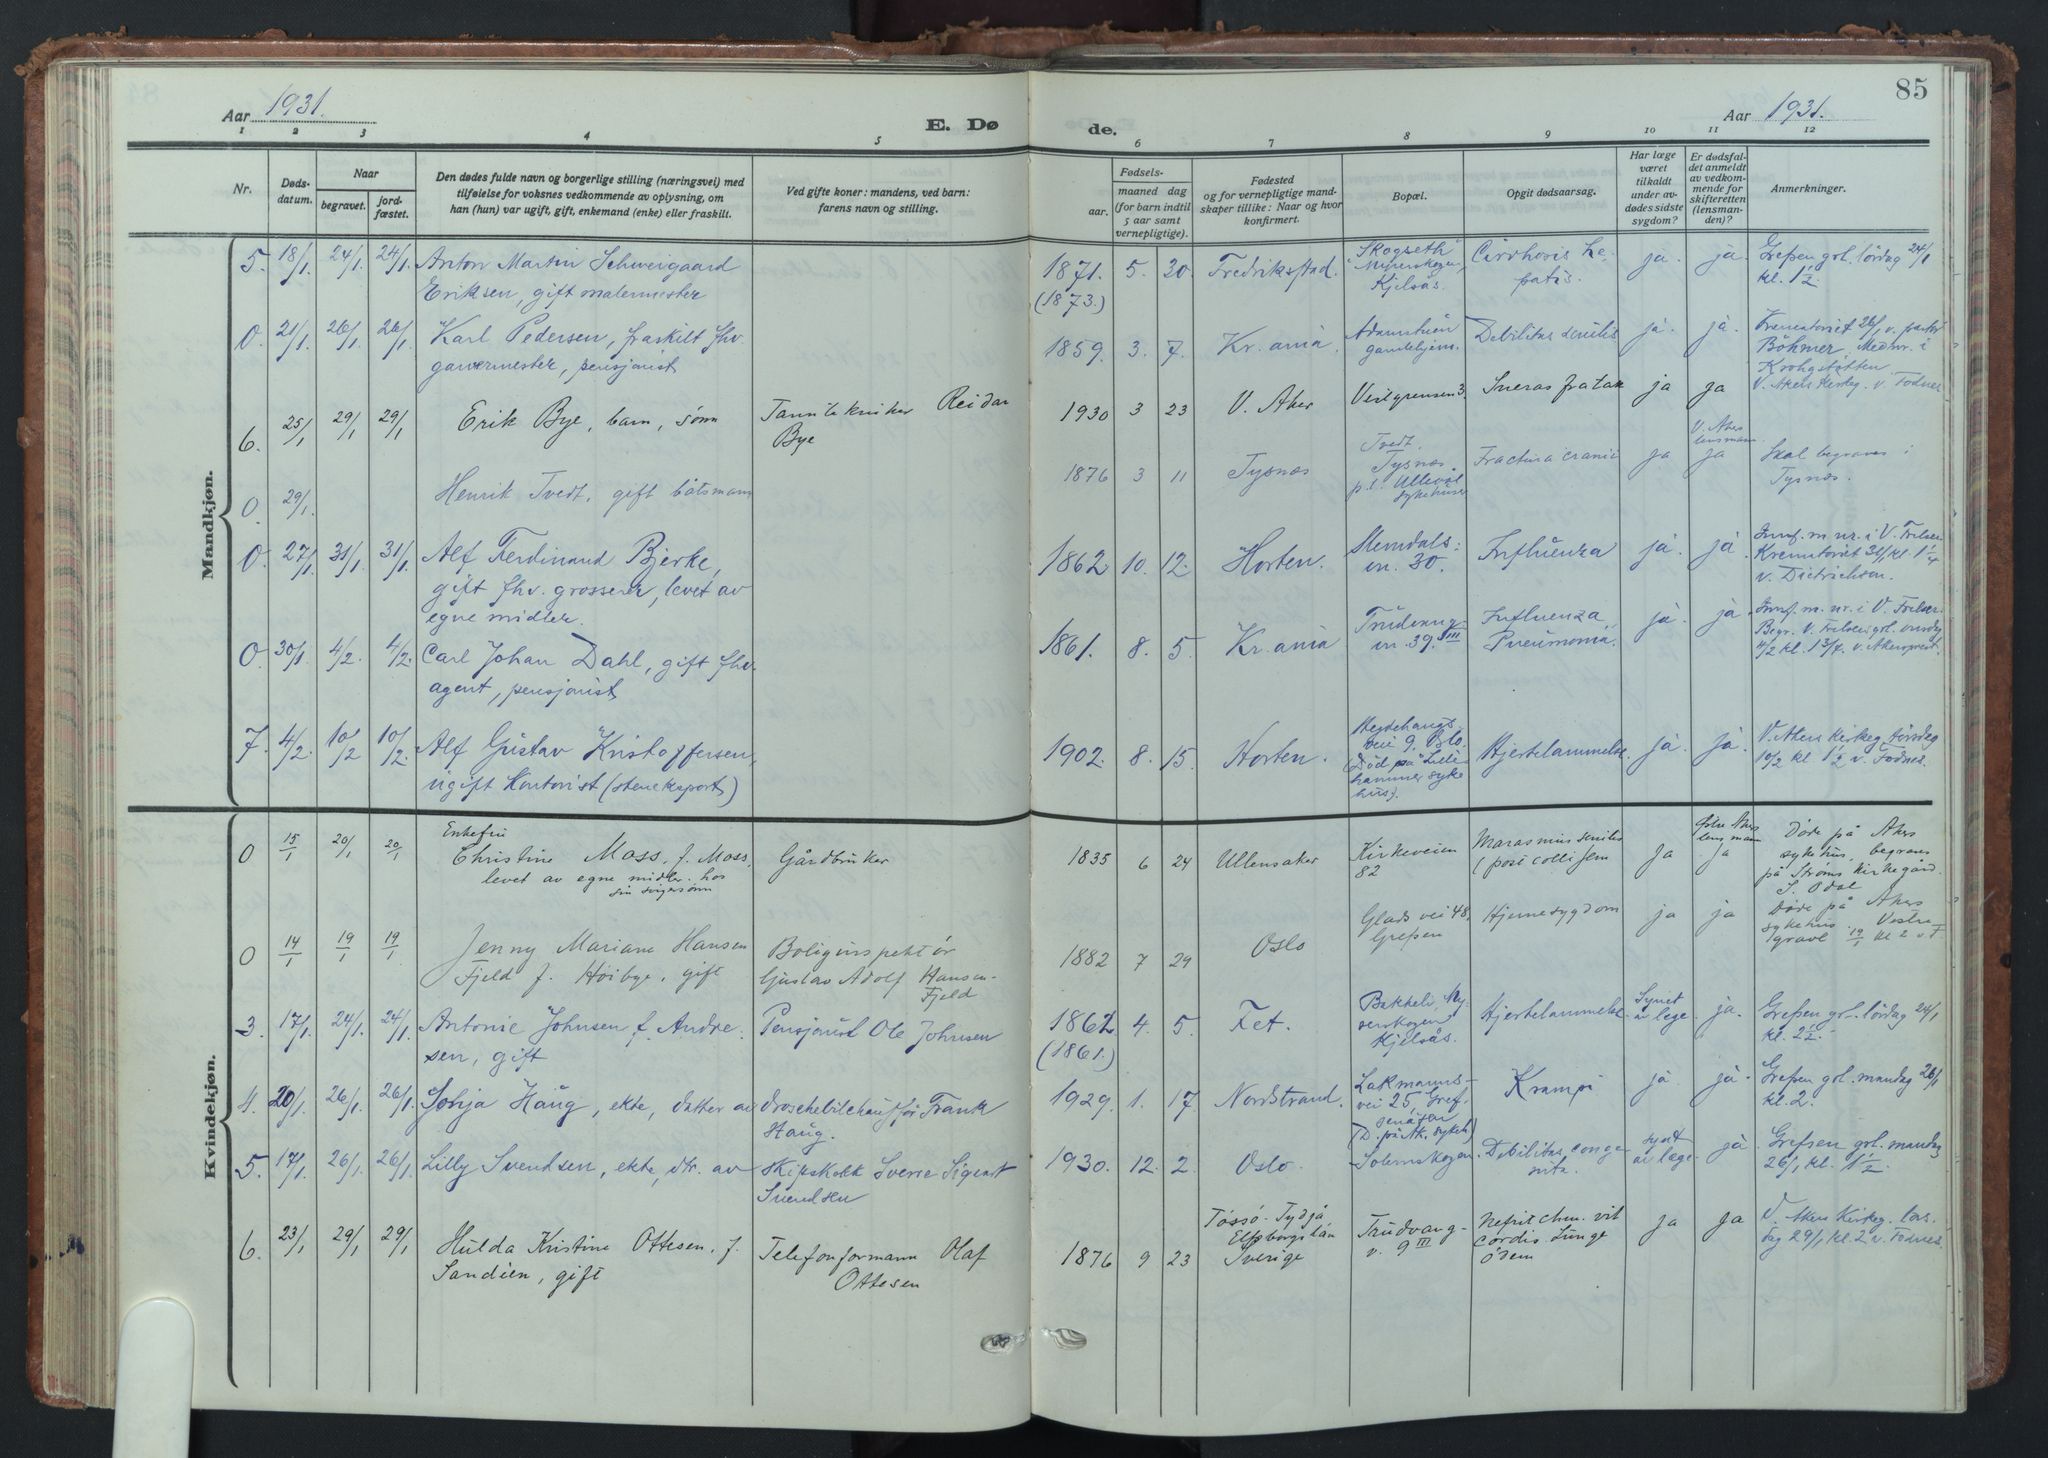 85
Aar 1931. E. Dø de. Aar 1931.
1 2 3 4 5 6 7 8 9 10 11 12
Nr.
Døds-
datum.
Naar
begravet.
jord-
fæstet.
Den dødes fulde navn og borgerlige stilling (næringsvei) med
tilføielse for voksnes vedkommende av oplysning, om
han (hun) var ugift, gift, enkemand (enke) eller fraskilt.
Ved gifte koner: mandens, ved barn:
farens navn og stilling.
Fødsels-
aar.
maaned dag
(for barn indtil
5 aar samt
vernepligtige).
Fødested
og for vernepligtige mand-
skaper tillike: Naar og hvor
konfirmert.
Bopæl.
Opgit dødsaarsag.
Har læge
været
tilkaldt
under av-
dødes sidste
sygdom?
Er dødsfal-
det anmeldt
av vedkom-
mende for
skifteretten
(lensman-
den)?
Anmerkninger.
Mandkjøn.
5. 18/1. 24/1. 24/1. Anton Martin Schweigaard
Eriksen, gift malermester
1871. 5. 30. Fredriksstad.
(1873.)
Skogseth
Kjelsås.
Cirrhosis he-
patis.
ja. ja.
Grefsen grl. lördag 24/1
kl. 1½
0. 21/1. 26/1. 26/1. Karl Pedersen, fraskilt fhv.
garvermester, pensjonist
1859. 3. 7. Kr.ania.
Adamstuen
gamlehjem.
Debilitas senilis
ja. ja.
Krematoriet 26/1 v. pastor
Böhmer. Med nr. i
Krohgstötten
6. 25/1 29/1 29/1 Erik Bye, barn, sönn
Tanntekniker Reidar
Bye
1930 3 23 V. Aker
Vestgrensen 3
ja ja
V. Akers Kirkeg. v. Fodnes
0. 29/1. Henrik Tvedt, gift båtsmann
1876 3 11 Tysnes
Tvedt.
Tysnes.
p.t. Ullevål
sykehus
Fractura cranii
ja
V. Aker
lensmann
ja
Skal begraves i
Tysnes.
0. 27/1. 31/1. 31/1. Alf Ferdinand Bjerke,
gift fhv. grosserer, levet av
egne midler.
1862 10. 12. Horten.
Slemdals-
vn. 30.
Influenza
ja. ja.
Innf. m nr. i V. Frelser
Krematoriet 31/1 kl. 1¼
v. Dietrichson.
0. 30/1. 4/2. 4/2. Carl Johan Dahl, gift fhv.
agent, pensjonist
1861. 8. 5. Kr.ania
Trudvang-
vn 39. III
Influenza
Pneumonia.
ja. ja.
Innf. m. nr. i V. Frelser.
Begr. V. Frelsers grl. onsdag
4/2 kl. 13/4 v. Akersprest.
7. 4/2. 10/2 10/2. Alf Gustav Kristoffersen,
ugift kontorist (steneksport)
1902. 8. 15. Horten.
vei 9. Oslo.
(Död på Lille-
hammer syke
hus).
Hjertelammelse
ja. ja.
V. Akers kirkeg tirsdag
10/2 kl 1½ v. Fodnes.
Kvindekjøn.
0 15/1 20/1 20/1
Enkefru
Christine Moss, f. Moss,
levet av egne midler hos
sin svigersønn
Gårdbruker
1835 6 24 Ullensaker
Kirkeveien
82
Marasmus senilis
(post colli fem
ja
Østre Akers
lensmann
ja
Døde på Akers
sykehus, begraves
på Strøms kirkegård
S. Odal
0 14/1 19/1 19/1 Jenny Mariane Hansen
Fjeld f. Höibye, gift
Boliginspektör
Gustav Adolf Hansen-
Fjeld
1882 7 29 Oslo
Glads vei 48,
Grefsen
Hjernesygdom
ja ja
Døde på Akers
sykehus. Vestre
gravl. 19/1 kl 2 v. F.
3. 17/1. 24/1. 24/1. Antonie Johnsen f. Andre-
sen, gift
Pensjonist Ole Johnsen
1862 4. 5. Fet.
(1861.)
Bakkeli, My-
rerskogen
Kjelsås.
Hjertelammelse
Synet
av lege
ja.
Grefsen grl. lördag 24/1
kl. 2½.
4. 20/1. 26/1. 26/1. Sonja Haug, ekte, datter av
droschebilchauffør Frank
Haug.
1929. 1. 17 Nordstrand.
Lakmanns-
vei 25, Gref-
senåsen
(D. på Ak. sykeh.)
Krampe
ja. ja.
Grefsen grl. mandag 26/1
kl. 2.
5. 17/1. 26/1. 26/1. Lilly Svendsen, ekte, dtr. av
skipskokk Sverre Sigurt
Svendsen
1930. 12. 2 Oslo.
Solemskogen.
Debilitas conge-
nita.
synt
av lege
ja
Grefsen grl. mandag
26/1 kl. 1½.
6. 23/1 29/1 29/1 Hulda Kristine Ottesen, f.
Sandéen, gift
Telefonformann Olaf
Ottesen
1876 9 23
Tössö. Tydjä
Elfsborgslän
Sverige
Trudvang-
v. 9 III
Nefrit chr. vit
cordis Lunge
ödem
ja ja
V. Akers Kirkeg. tors-
dag 29/1 kl. 2 v. Fodnes.